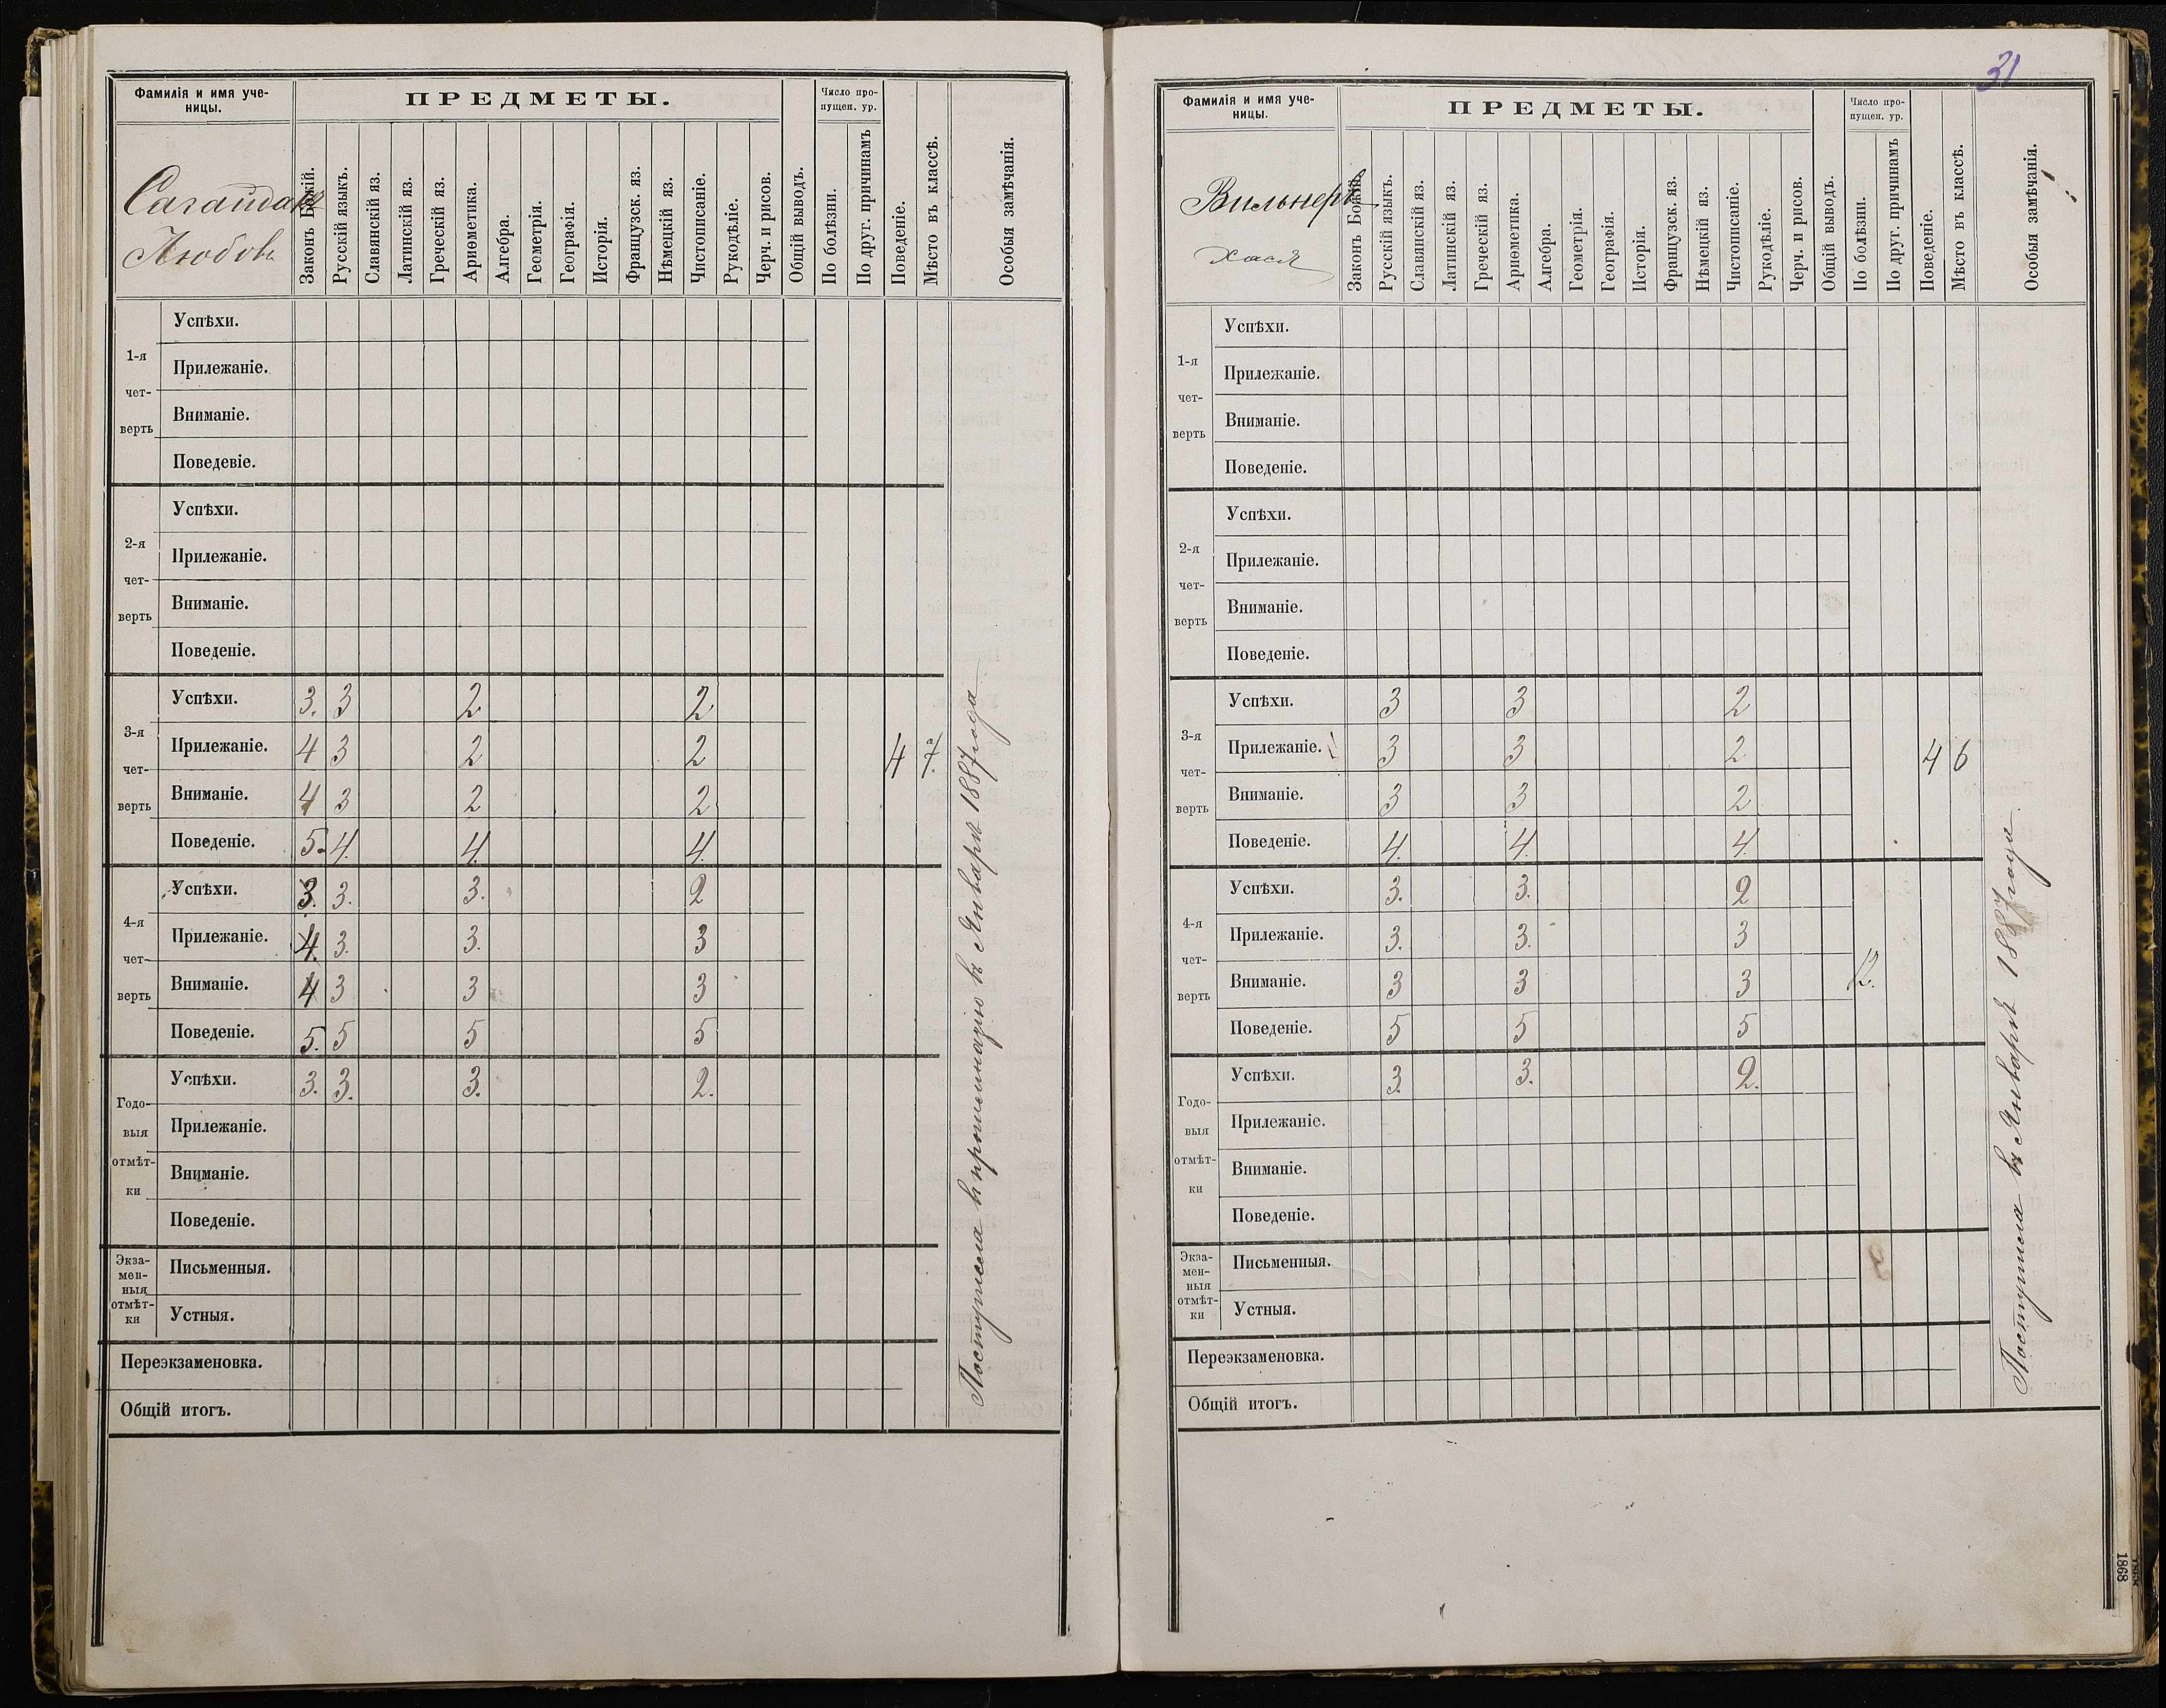 Фамилія и имя уче-
ницы.
ПРЕДМЕТЫ.
Число про-
пущен. ур.
Сагайдакъ
Любовь
Законъ Божій.
Русскій языкъ.
Славянскій яз.
Латинскій яз.
Греческій яз.
Ариѳметика.
Алгебра.
Геометрія.
Географія.
Исторія.
Французск. яз.
Нѣмецкій яз.
Чистописаніе.
Рукодѣліе.
Черч. и рисов.
Общій выводъ.
По болѣзни.
По друг. причинамъ
Поведеніе.
Мѣсто въ классѣ.
Особыя замѣчанія.
1-я чет- верть
Успѣхи.
Прилежаніе.
Вниманіе.
Поведевіе.
2-я чет- верть
Успѣхи.
Прилежаніе.
Вниманіе.
Поведеніе.
3-я чет- верть
Успѣхи. 3. 3 2 2
Прилежаніе. 4 3 2 2 4 7.
Вниманіе. 4 3 2 2
Поведеніе. 5. 4. 4. 4.
4-я чет- верть
Успѣхи. 3. 3. 3. 2
Прилежаніе. 4. 3. 3. 3
Вниманіе. 4 3 3 3
Поведеніе. 5. 5 5 5
Годо- выя отмѣт- ки
Успѣхи. 3. 3. 3. 2.
Прилежаніе.
Вниманіе.
Поведеніе.
Экза- мен- ныя отмѣт- ки
Письменныя.
Устныя.
Переэкзаменовка.
Общій итогъ.
Поступила въ прогимназію въ Январѣ 1887 года
31
Фамилія и имя уче-
ницы.
ПРЕДМЕТЫ.
Число про-
пущен. ур.
Вильнеръ
Хася
Законъ Божій.
Русскій языкъ.
Славянскій яз.
Латинскій яз.
Греческій яз.
Ариѳметика.
Алгебра.
Геометрія.
Географія.
Исторія.
Французск. яз.
Нѣмецкій яз.
Чистописаніе.
Рукодѣліе.
Черч. и рисов.
Общій выводъ.
По болѣзни.
По друг. причинамъ
Поведеніе.
Мѣсто въ классѣ.
Особыя замѣчанія.
1-я чет- верть
Успѣхи.
Прилежаніе.
Вниманіе.
Поведеніе.
2-я чет- верть
Успѣхи.
Прилежаніе.
Вниманіе.
Поведеніе.
3-я чет- верть
Успѣхи. 3 3 2
Прилежаніе. 3 3 2 4 6
Вниманіе. 3 3 2
Поведеніе. 4. 4. 4.
4-я чет- верть
Успѣхи. 3. 3. 2
Прилежаніе. 3. 3. 3
Вниманіе. 3 3 3 12.
Поведеніе. 5 5 5
Годо- выя отмѣт- ки
Успѣхи. 3. 3. 2.
Прилежаніе.
Вниманіе.
Поведеніе.
Экза- мен- ныя отмѣт- ки
Письменныя.
Устныя.
Переэкзаменовка.
Общій итогъ.
Поступила въ Январѣ 1887 года
1868